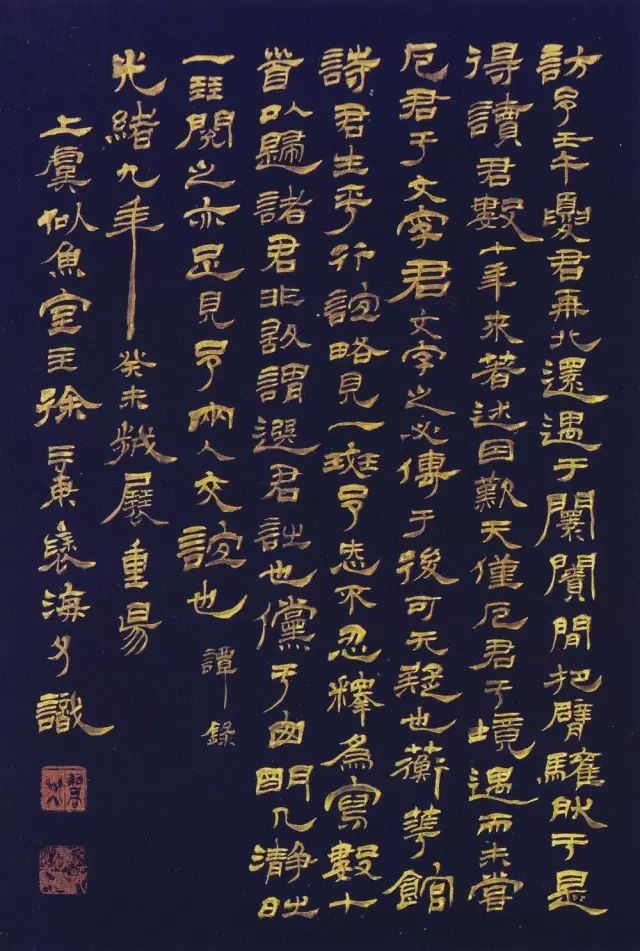 訪予壬午夏君再北還遇于闤闠間把臂驩肰于是
得讀君數十年来著述因歎天僅厄君于境遇而未嘗
厄君于文字君文字之必傳于後可无疑也蘅華館
詩君生平行誼略見一斑予不忍釋為寫數十
首以歸諸君非敢謂選君詩也儻于囪明几瀞時
一㠭閱之亦足見予兩人交誼也 譚錄
光緒九年癸未秋展重昜
上虞似魚室主徐三庚褎海父識